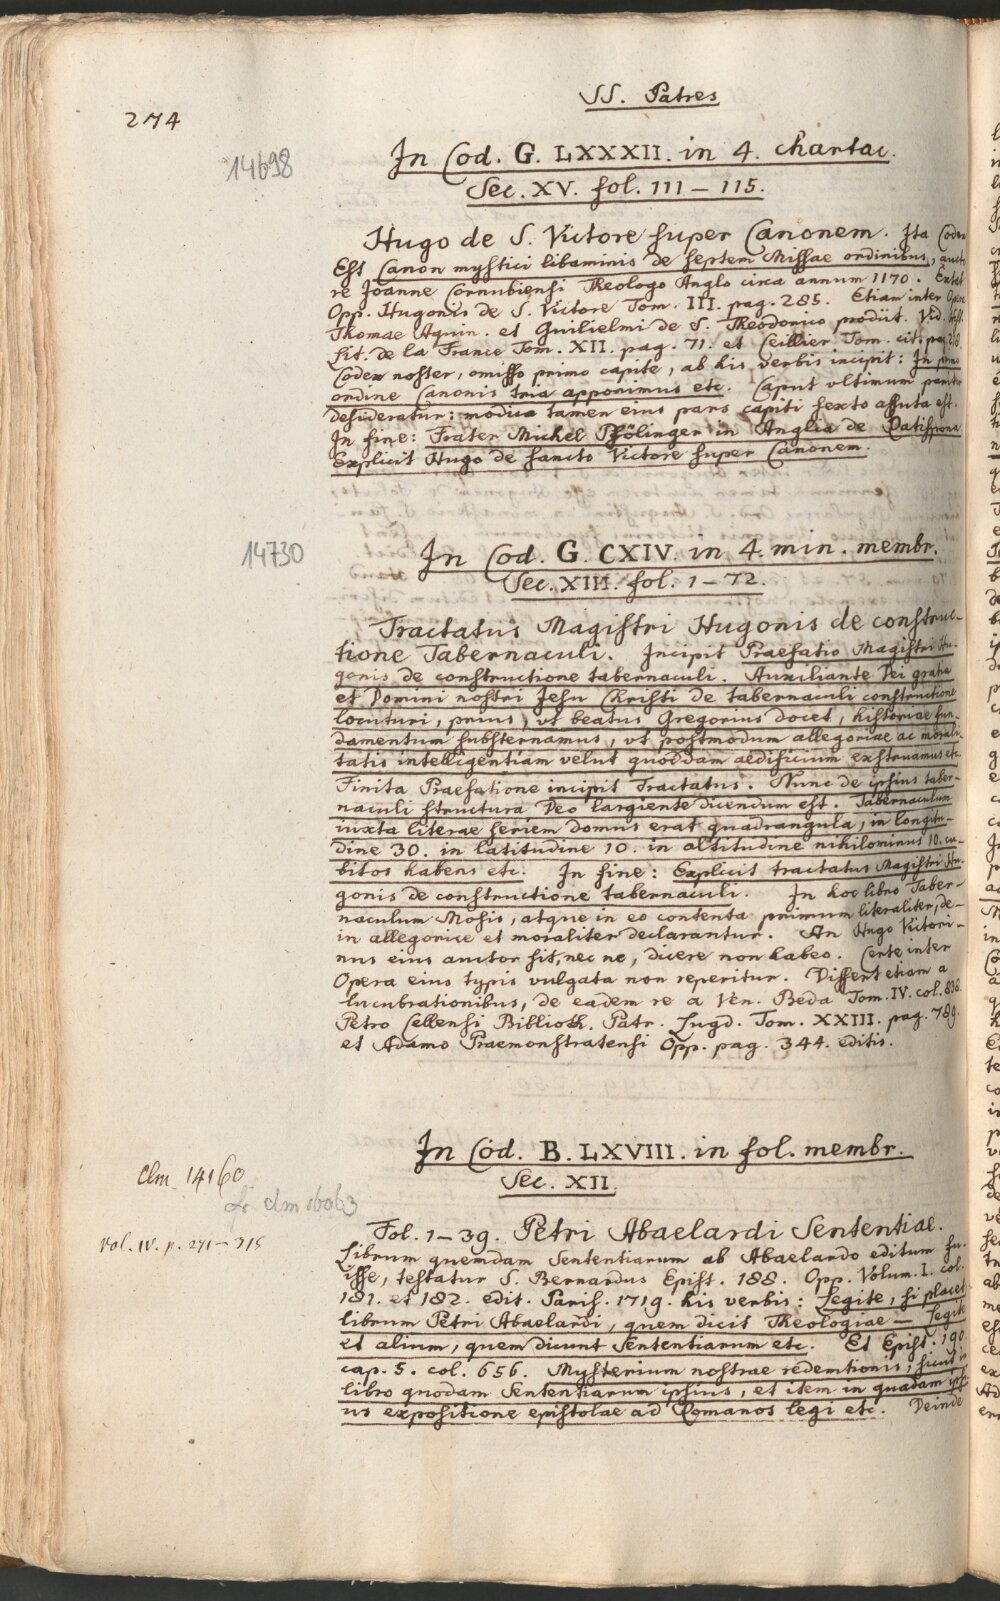 SS. Patres
274
14698
In Cod. G. LXXXII. in 4. chartac.
Sec. XV. fol. 111 – 115.
Hugo de S. Victore super Canonem. Ita Codex
Est Canon mystici libaminis de septem Missae ordinibus, aucto
re Joanne Cornubiensi Theologo Anglo circa annum 1170. Extat
Opp. Hugonis de S. Victore Tom. III. pag. 285. Etiam inter Opera
Thomae Aquin. et Guilielmi de S. Theodorico prodiit. Vid. Hist.
Lit. de la France Tom. XII. pag. 71. et Ceillier Tom. cit. pag.
Codex noster, omisso primo capite, ab his verbis incipit: In primo
ordine Canonis tria apponimus etc. Caput ultimum pariter
desideratur: modica tamen eius pars capiti sexto assuta est.
In fine: Frater Michel Pfölinger in Anglia de Ratispona
Explicit Hugo de sancto Victore super Canonem.
14730
In Cod. G. CXIV. in 4. min. membr.
Sec. XIII. fol. 1 – 72.
Tractatus Magistri Hugonis de construc-
tione Tabernaculi. Incipit Praefatio Magistri Hu-
gonis de constructione tabernaculi. Auxiliante Dei gratia
et Domini nostri Jesu Christi de tabernaculi constructione
locuturi, prius, vt beatus Gregorius docet, historiae fun-
damentum substernamus, vt postmodum allegoriae ac morali
tatis intelligentiam velut quoddam aedificium exstruamus etc.
Finita Praefatione incipit Tractatus. Nunc de ipsius taber-
naculi structura Deo largiente dicendum est. Tabernaculum
iuxta literae seriem domus erat quadrangula, in longitu-
dine 30. in latitudine 10. in altitudine nihilominus 10. cu-
bitos habens etc. In fine: Explicit tractatus Magistri Hu-
gonis de constructione tabernaculi. In hoc libro Taber-
naculum Mosis, atque in eo contenta primum literaliter, de-
in allegorice et moraliter declarantur. An Hugo Victori-
nus eius auctor sit, nec ne, dicere non habeo. Certe inter
Opera eius typis vulgata non reperitur. Differt etiam a
lucubrationibus, de eadem re a Ven. Beda Tom. IV. col. 838.
Petro Cellensi Biblioth. Patr. Lugd. Tom. XXIII. pag. 789.
et Adamo Praemonstratensi Opp. pag. 344. editis.
In Cod. B. LXVIII. in fol. membr.
Sec. XII.
Clm 14160
cf. clm 16063
Vol. IV. p. 271 – 315
Fol. 1 – 39. Petri Abaelardi Sententiae.
Librum quemdam Sententiarum ab Abaelardo editum fu-
isse, testatur S. Bernardus Epist. 188. Opp. Volum. I. col.
181. et 182. edit. Paris. 1719. his verbis: Legite, si placet
librum Petri Abaelardi, quem dicit Theologiae — Legite
et alium, quem dicunt Sententiarum etc. Et Epist. 190.
cap. 5. col. 656. Mysterium nostrae redemtionis, sicut in
libro quodam Sententiarum ipsius, et item in quadam ipsi
us expositione epistolae ad Romanos legi etc. Deinde